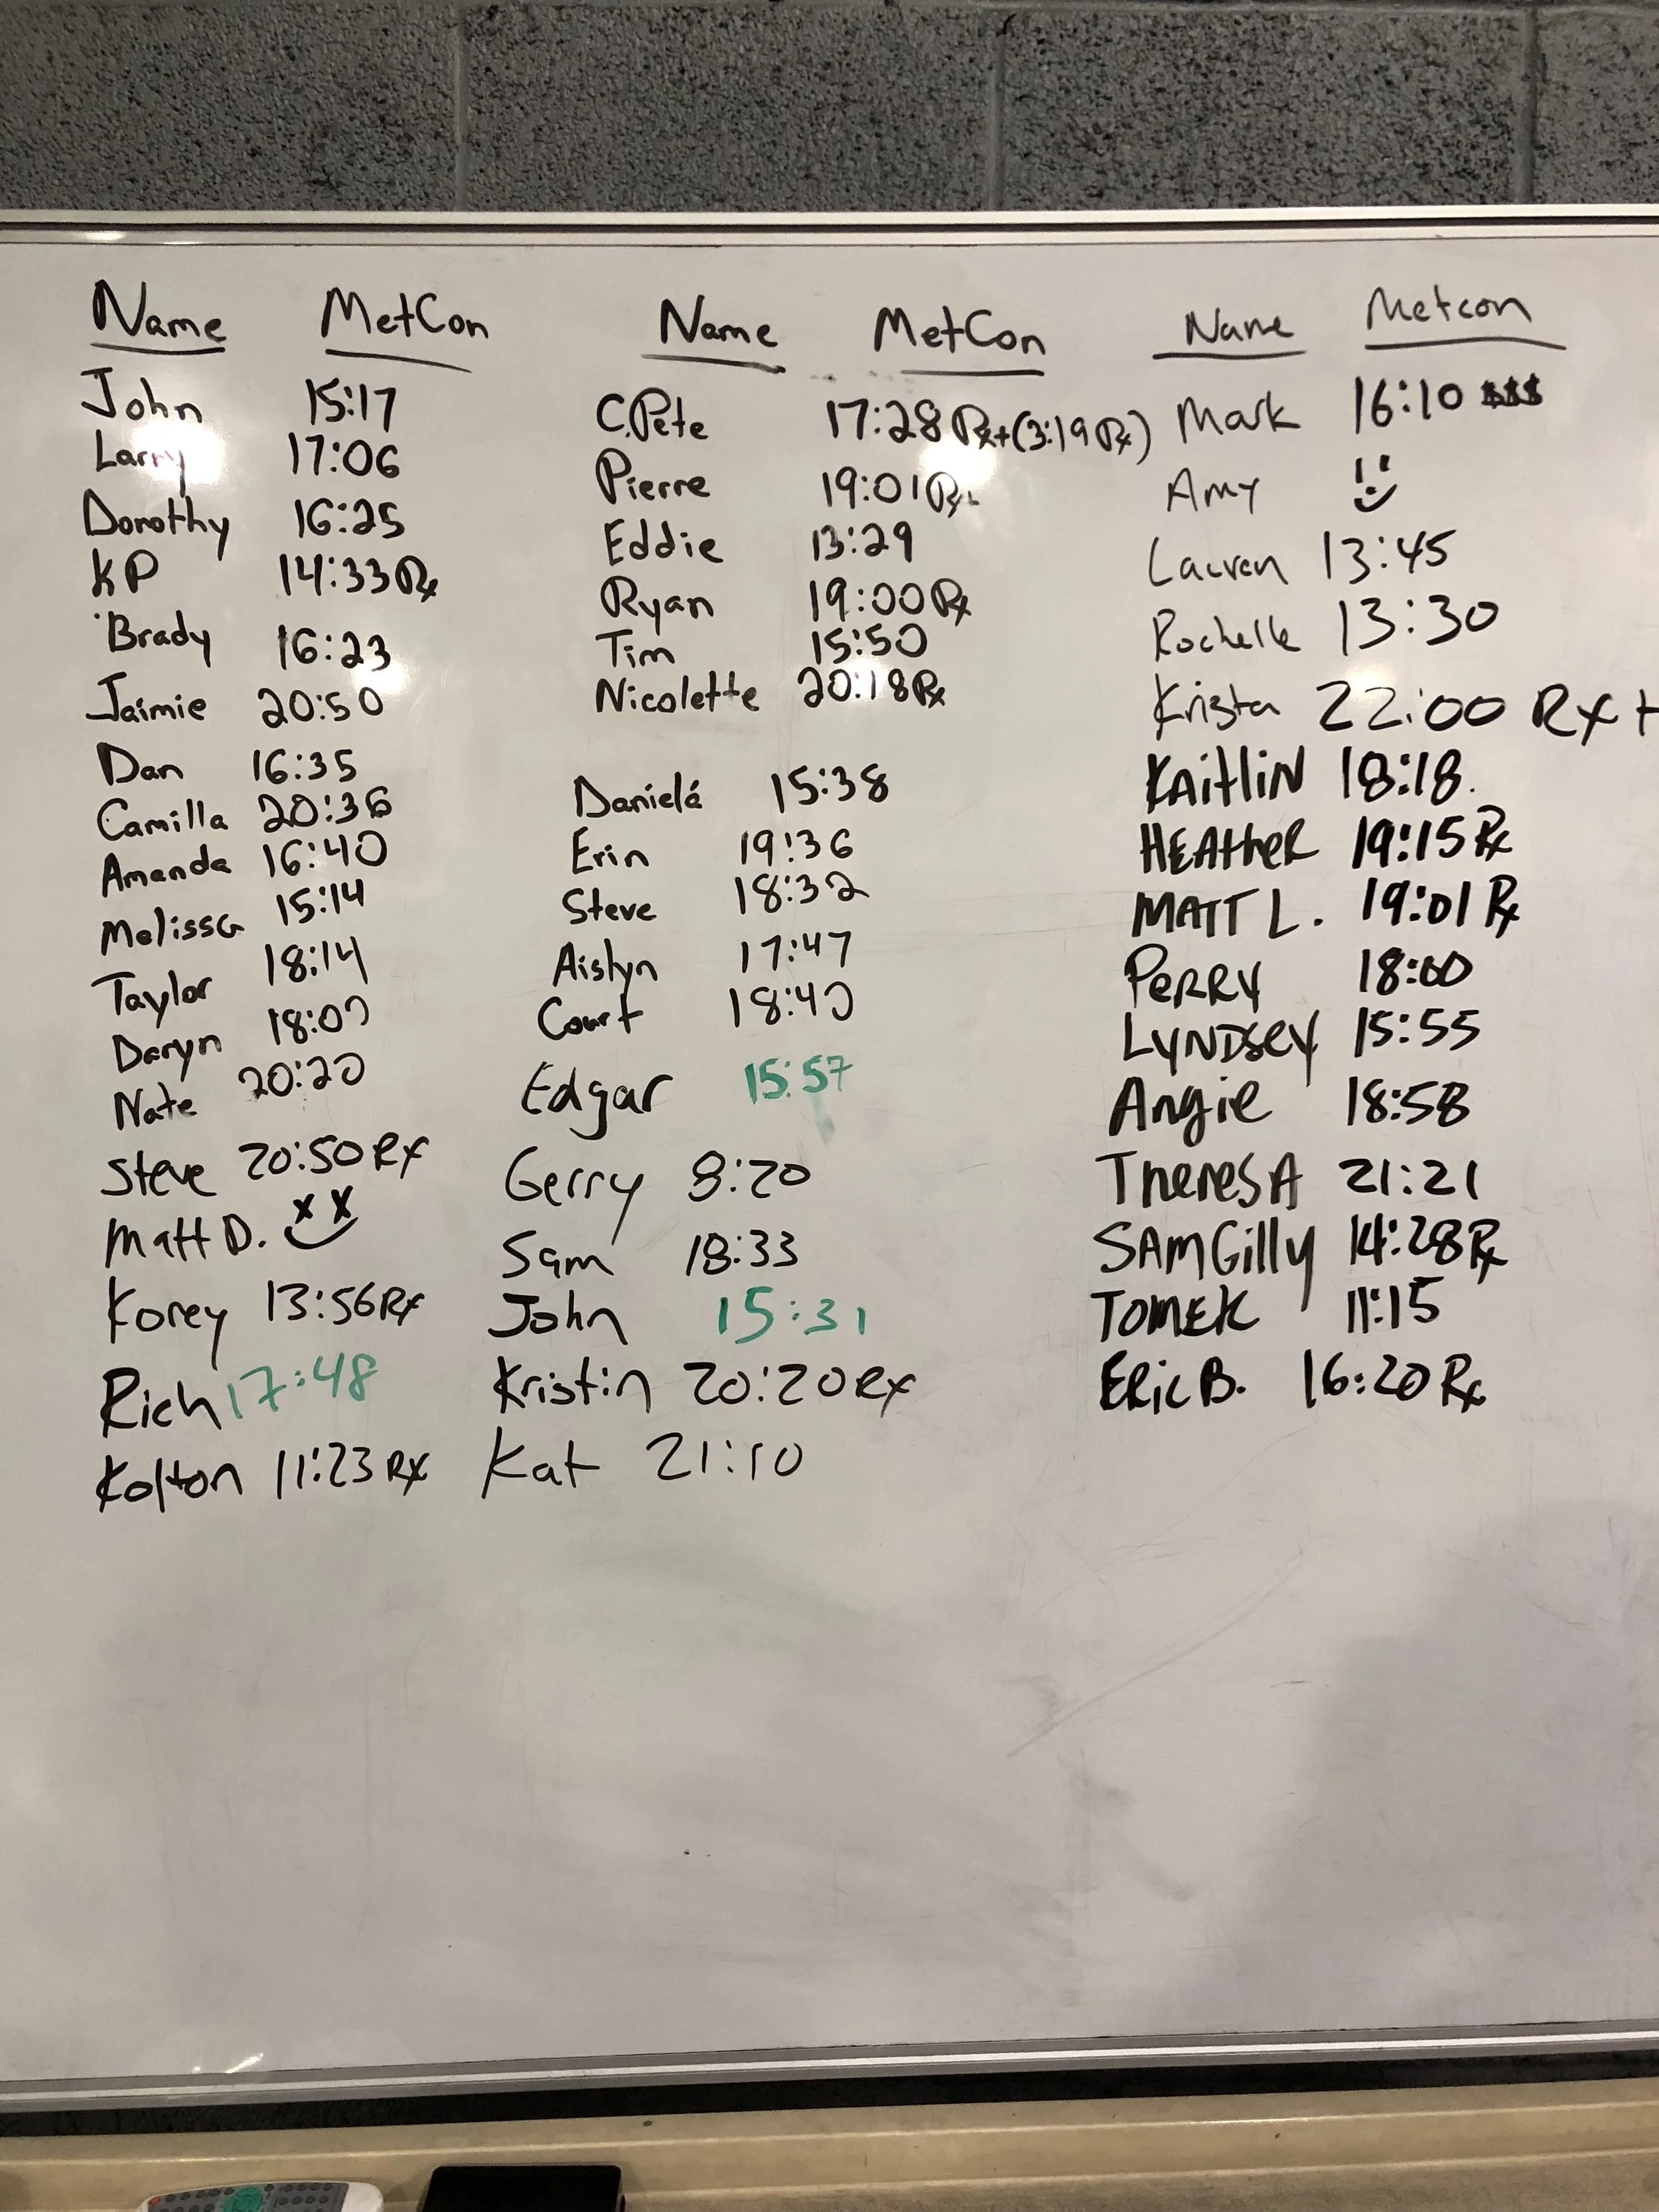 Name MetCon
John 15:17
Larry 17:06
Dorothy 16:25
KP 14:33 Rx
Brady 16:23
Jaimie 20:50
Dan 16:35
Camilla 20:36
Amanda 16:40
Melissa 15:14
Taylor 18:14
Daryn 18:00
Nate 20:20
Steve 20:50 Rx
Matt D.
Korey 13:56 Rx
Rich 17:48
Kolton 11:23 Rx
Name MetCon
C.Pete 17:28 Rx+(3:19 Rx)
Pierre 19:01 Rx
Eddie 13:29
Ryan 19:00 Rx
Tim 15:50
Nicolette 20:18 Rx
Danielá 15:38
Erin 19:36
Steve 18:32
Aislyn 17:47
Court 18:40
Edgar 15:57
Gerry 8:20
Sam 18:33
John 15:31
Kristin 20:20 Rx
Kat 21:10
Name Metcon
Mark 16:10 $$$
Amy
Lauren 13:45
Rochelle 13:30
Krista 22:00 Rx+
KAitliN 18:18.
HEAtheR 19:15 Rx
MATT L. 19:01 Rx
PeRRy 18:00
LyNDsey 15:55
Angie 18:58
TheresA 21:21
SAM Gilly 14:28 Rx
TOMEK 11:15
ERic B. 16:20 Rx